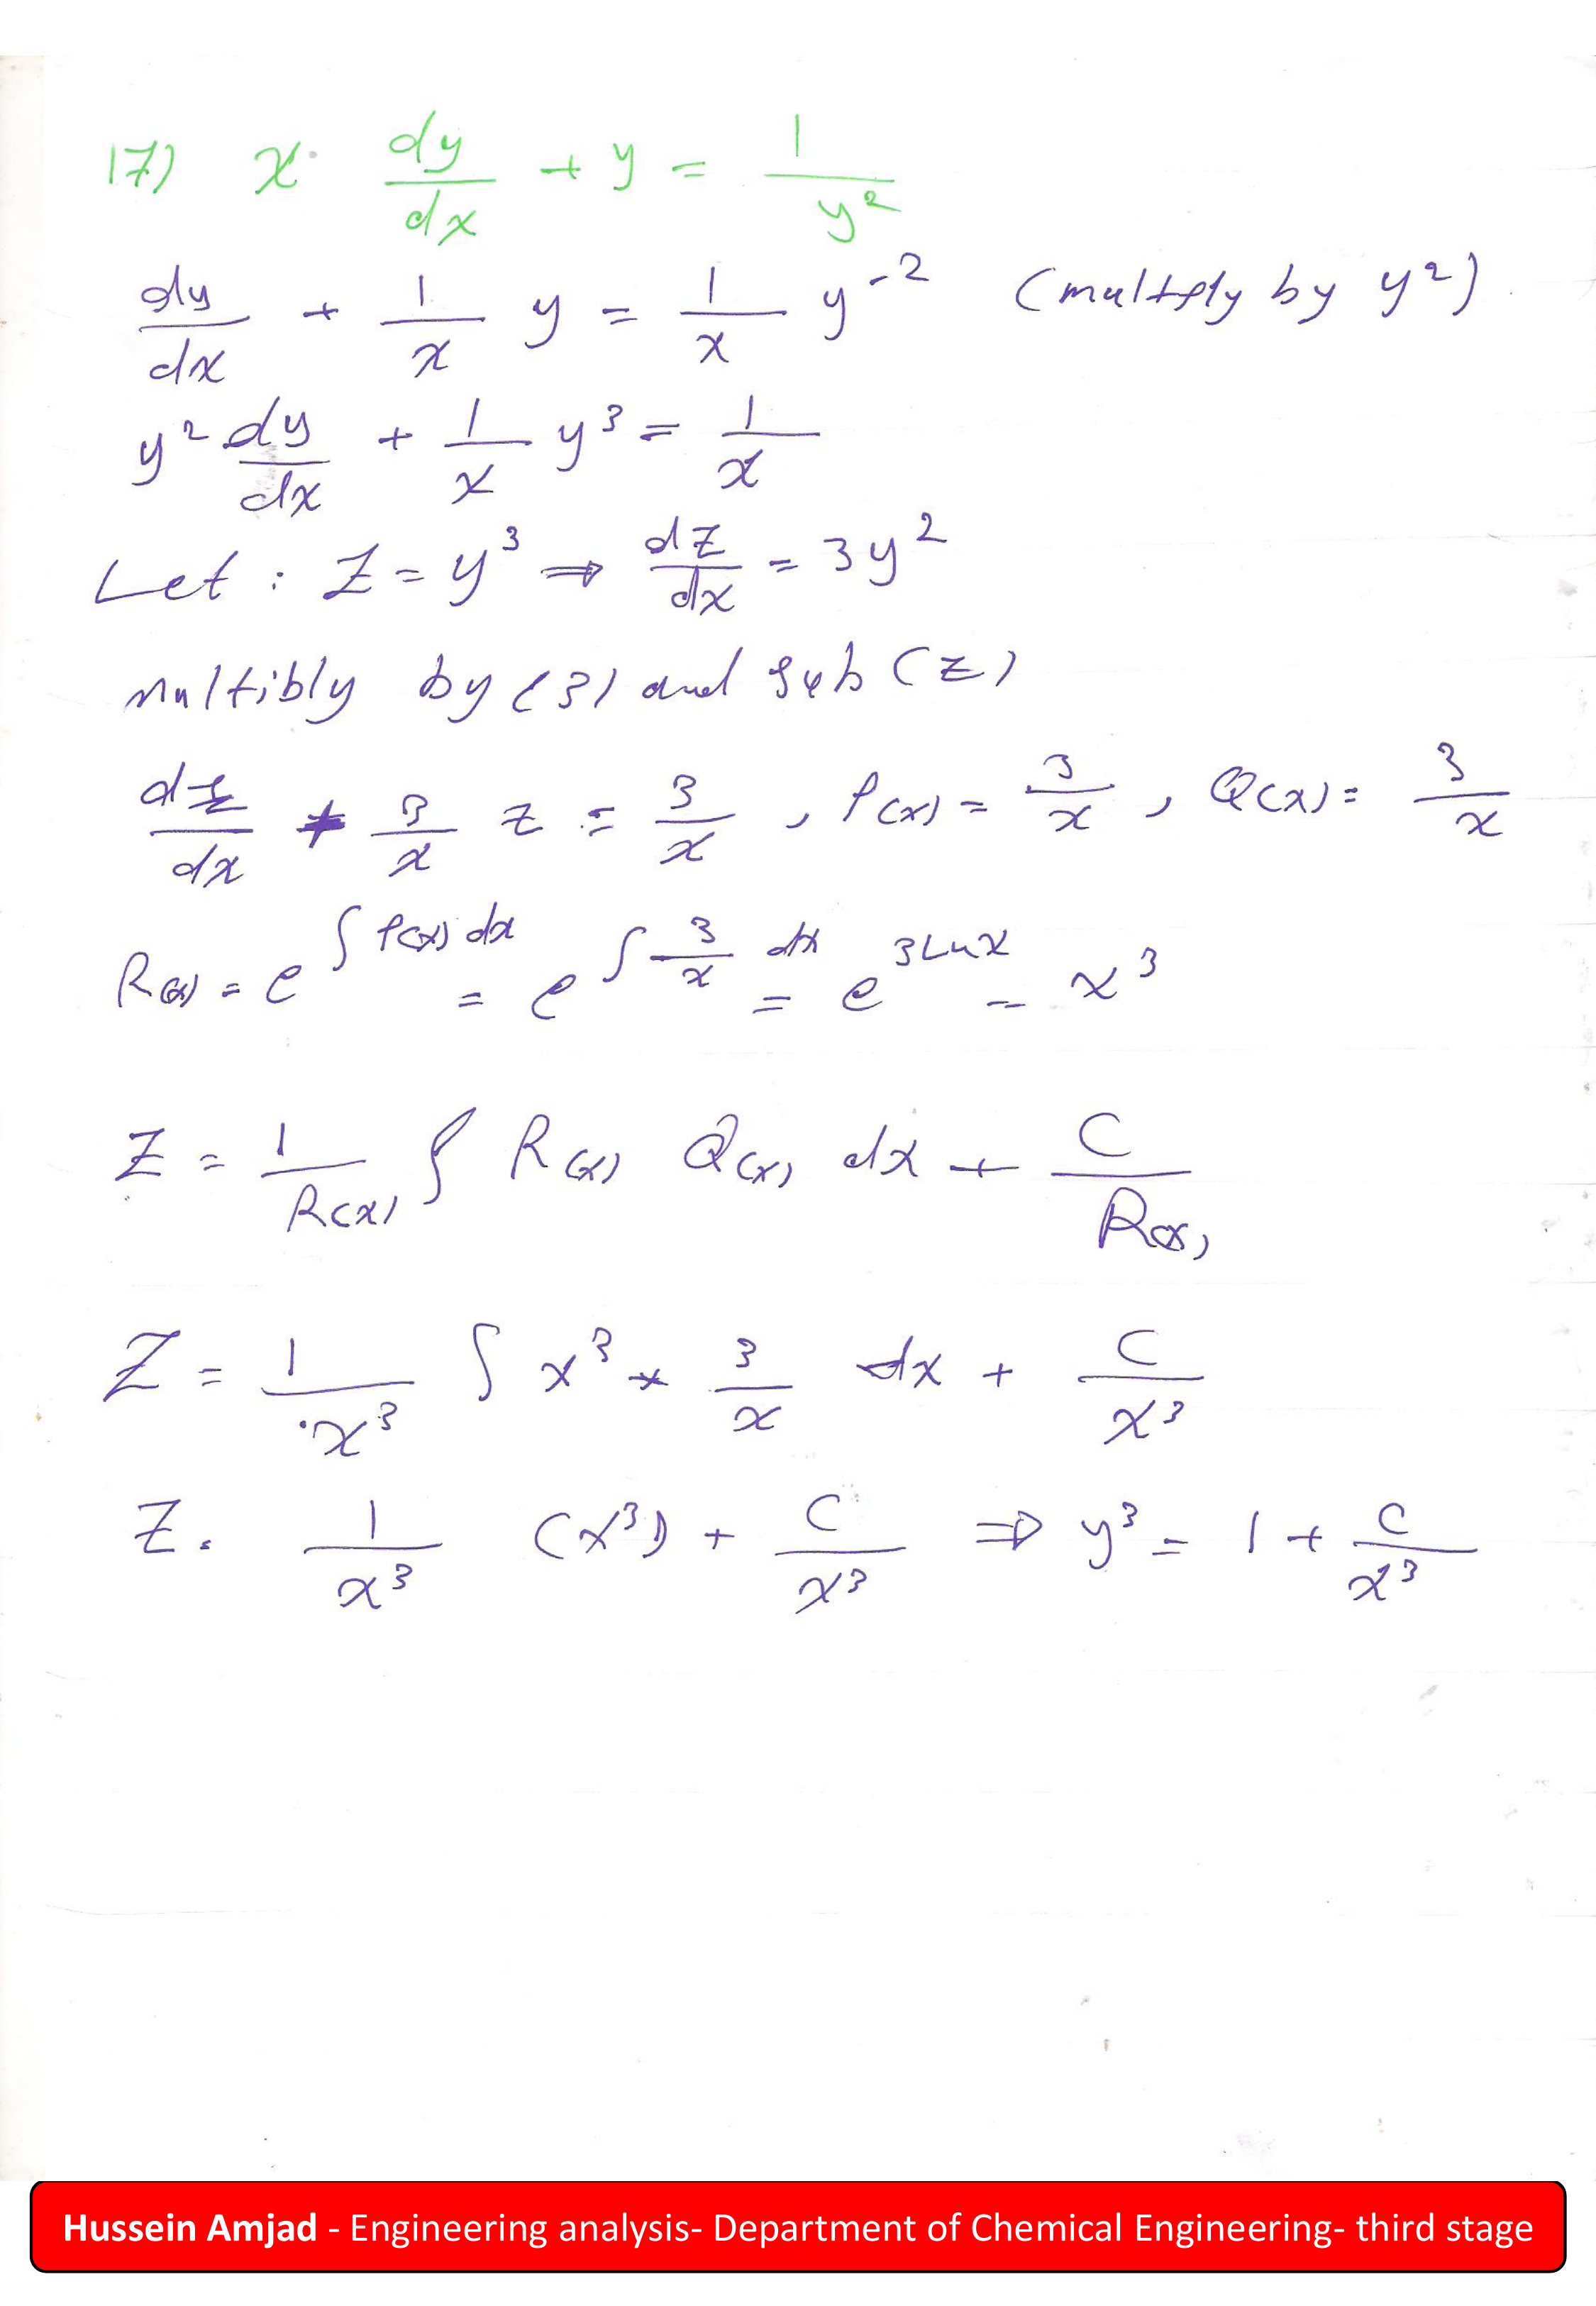 17) x · dy/dx + y = 1/y²
dy/dx + 1/x y = 1/x y⁻² (multiply by y²)
y² dy/dx + 1/x y³ = 1/x
Let : Z = y³ ⇒ dZ/dx = 3y²
multibly by (3) and sub (z)
dz/dx + 3/x z = 3/x , P(x) = 3/x , Q(x) = 3/x
R(x) = e^∫P(x) dx = e^∫3/x dx = e^3Lnx = x³
Z = 1/R(x) ∫ R(x) Q(x) dx + C/R(x)
Z = 1/x³ ∫ x³ * 3/x dx + C/x³
Z = 1/x³ (x³) + C/x³ ⇒ y³ = 1 + C/x³
Hussein Amjad - Engineering analysis- Department of Chemical Engineering- third stage